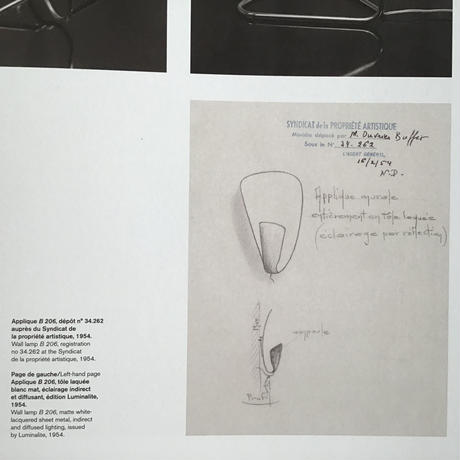 SYNDICAT de la PROPRIÉTÉ ARTISTIQUE
Modèle déposé par M. Buffer
Sous le N° 34.262
L'AGENT GÉNÉRAL,
16/2/54
N.D.
Applique murale
entièrement en tôle laquée
(éclairage par réflection)
ampoule
Profil
Applique B 206, dépôt n° 34.262
auprès du Syndicat de
la propriété artistique, 1954.
Wall lamp B 206, registration
no 34.262 at the Syndicat
de la propriété artistique, 1954.
Page de gauche/Left-hand page
Applique B 206, tôle laquée
blanc mat, éclairage indirect
et diffusant, édition Luminalite,
1954.
Wall lamp B 206, matte white-
lacquered sheet metal, indirect
and diffused lighting, issued
by Luminalite, 1954.